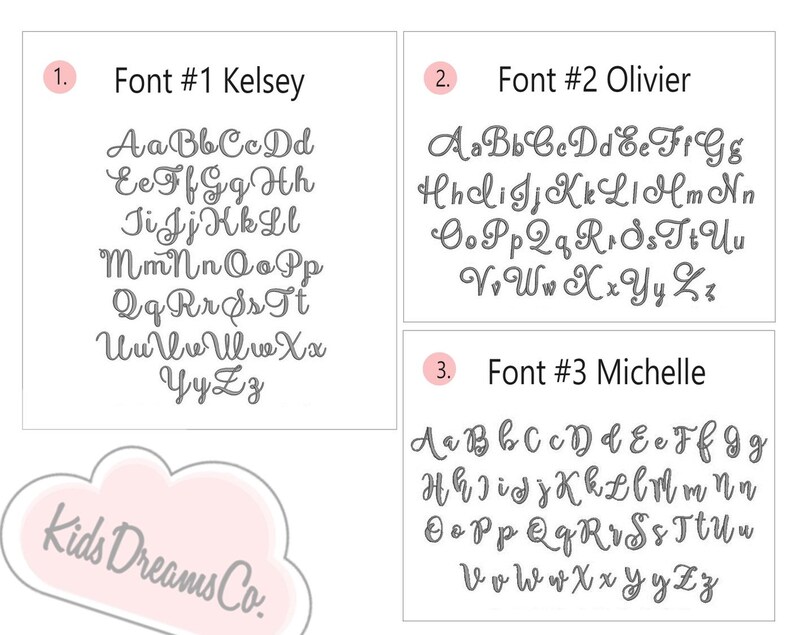 1.
Font #1 Kelsey
AaBbCcDd
EeFfGgHh
IiJjKkLl
MmNnOoPp
QqRrSsTt
UuVvWwXx
YyZz
2.
Font #2 Olivier
AaBbCcDdEeFfGg
HhIiJjKkLlMmNn
OoPpQqRrSsTtUu
VvWwXxYyZz
3.
Font #3 Michelle
AaBbCcDdEeFfGg
HhIiJjKkLlMmNn
OoPpQqRrSsTtUu
VvWwXxYyZz
KidsDreamsCo.